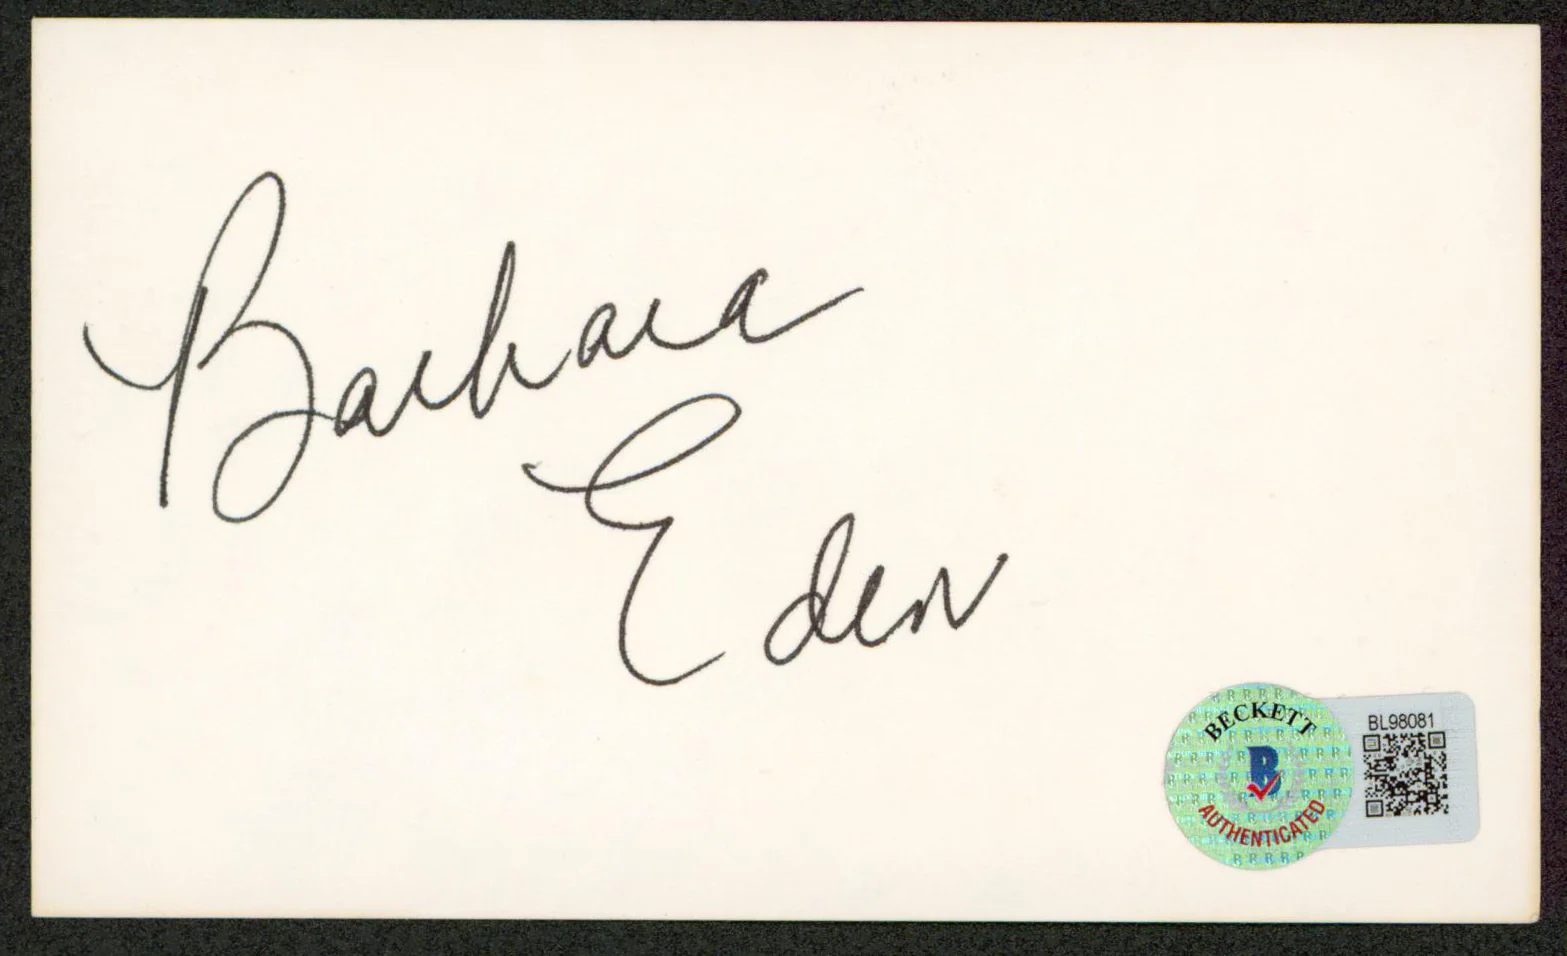 Barbara
Eden
BECKETT
B
AUTHENTICATED
BL98081